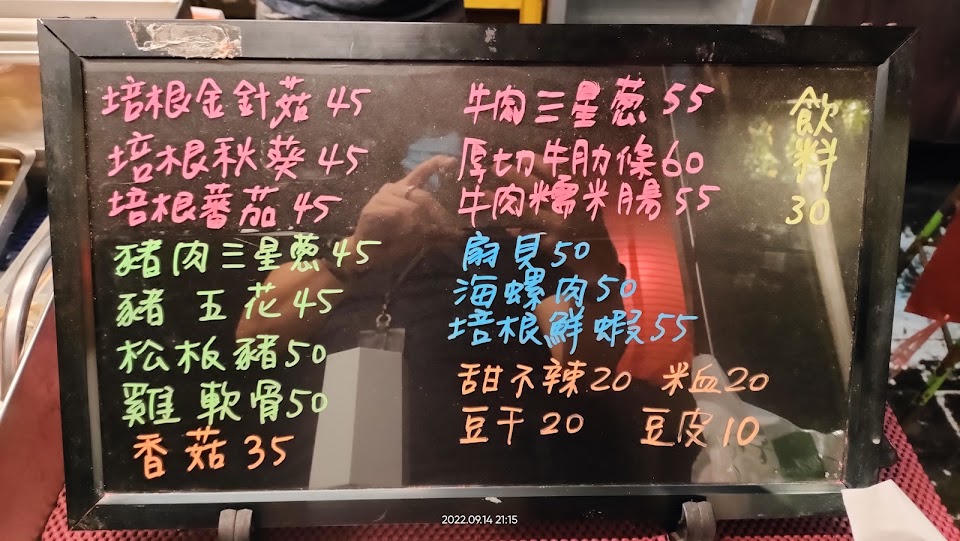 培根金針菇 45
培根秋葵 45
培根蕃茄 45
豬肉三星蔥 45
豬 五花 45
松板豬 50
雞 軟骨 50
香菇 35
牛肉三星蔥 55
厚切牛肋條 60
牛肉糯米腸 55
扇貝 50
海螺肉 50
培根鮮蝦 55
甜不辣 20 米血 20
豆干 20 豆皮 10
飲料
30
2022.09.14 21:15